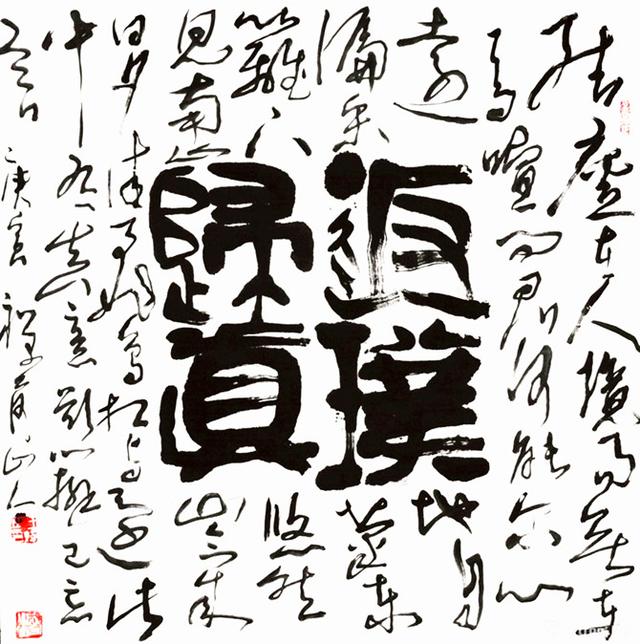 返璞
歸真
結廬在人境而無車
馬喧問君何能爾心
遠地自
偏采菊東
籬下悠然
見南山山氣
日夕佳飛鳥相與還此
中有真意欲辨已忘
言 庚寅 山人